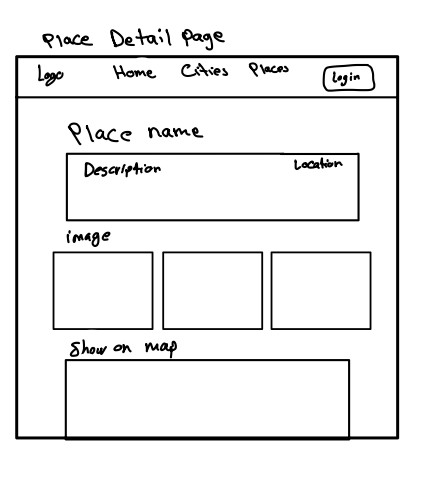 Place Detail Page
Logo Home Cities Places Login
Place name
Description Location
image
Show on map